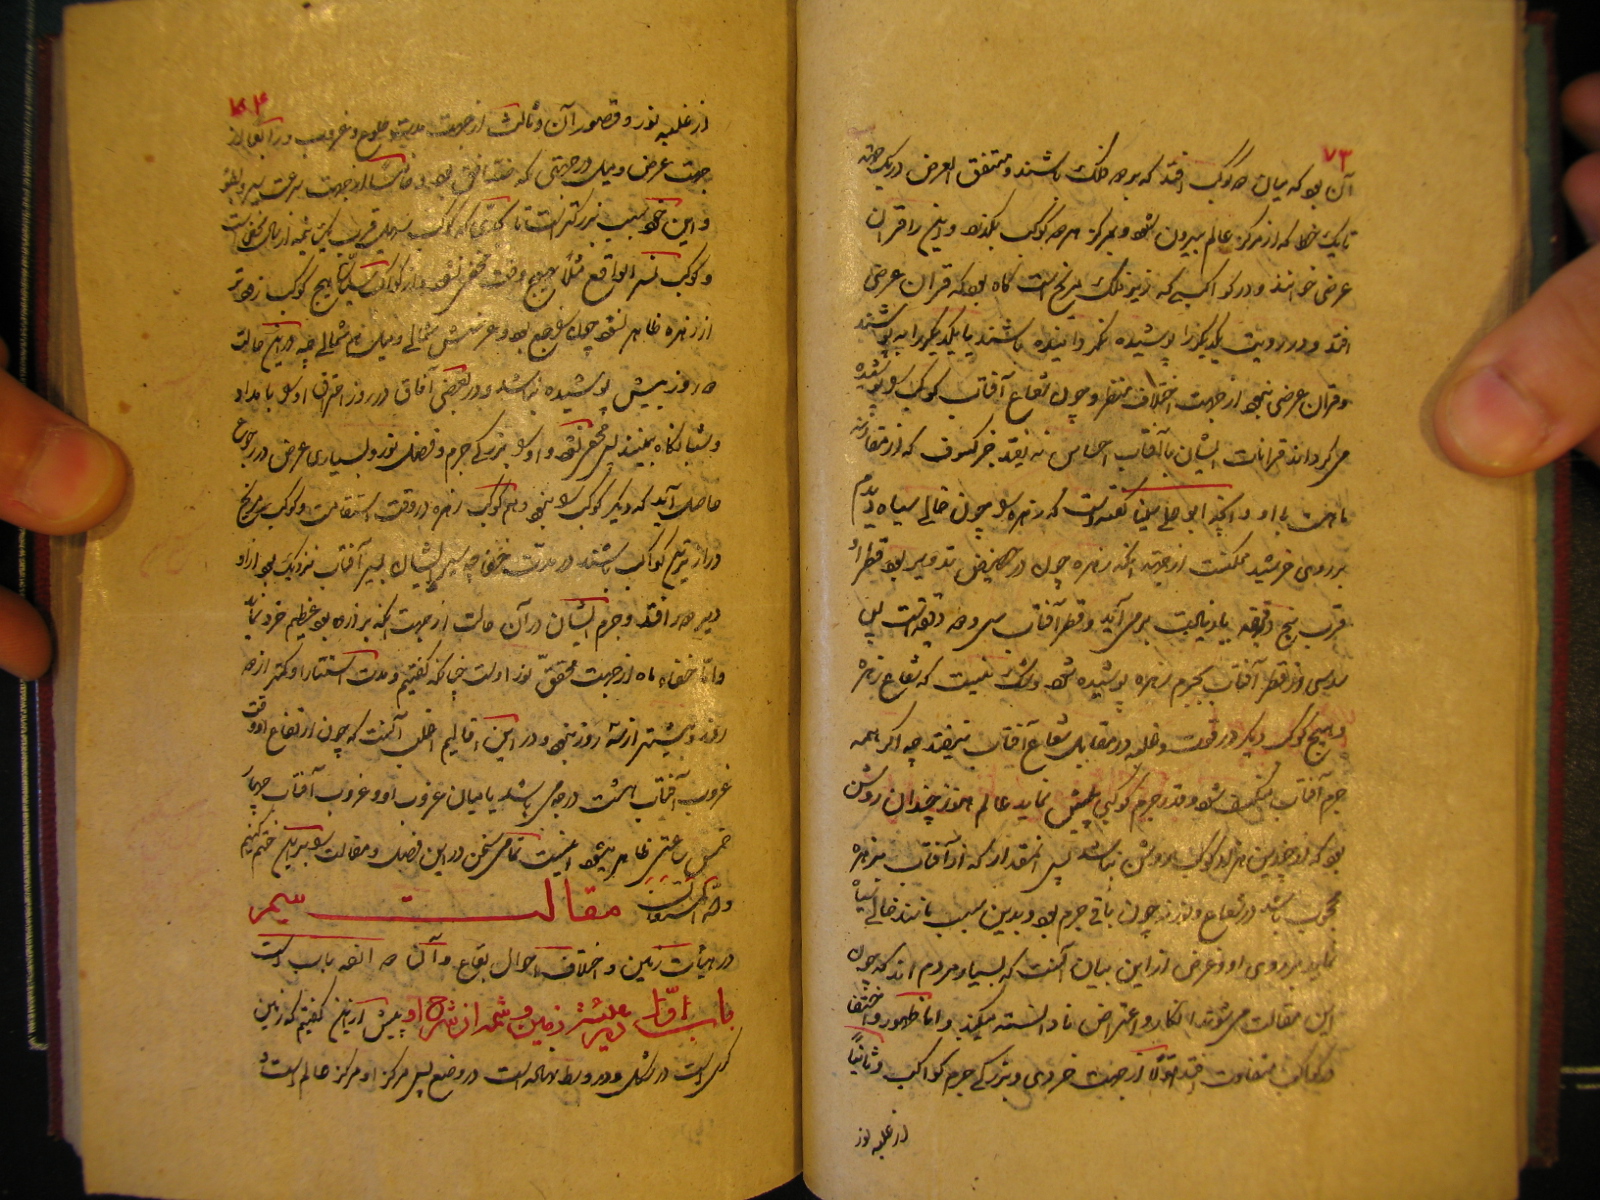 ۷۳
آن بود که میان دو کوکب افتد که بر دو فلک باشند و متفق العرض در یک جهة
تا یک خط که از مرکز عالم بیرون شود و بمرکز هر دو کوکب بگذرد و اینرا قران
عرضی خوانند و در کواکبی که زیر فلک مریخ است گاه بود که قران عرضی
افتد و در رویت یکدیگر را پوشیده نگردانیده باشند یا یکدیگر را بپوشند
و قران عرضی نبود از جهت اختلاف منظر و چون شعاع آفتاب کوکب را پوشیده
می گرداند قرانات ایشان با آفتاب احساس نیفتد جز کسوف که از مقارنه
ماهست با او و آنکه ابو علی سینا گفته است که زهره را چون خالی سیاه دیدم
بر روی خرشید ممکنست از جهت آنکه زهره چون در حضیض تدویر بود قطر او
قرب پنج دقیقه باز نیافت بر می آید و قطر آفتاب سی و دو دقیقه است پس
سدسی از قطر آفتاب بجرم زهره پوشیده شود و شک نیست که شعاع زهره
و هیچ کوکب دیگر در قوت و غلبه در مقابل شعاع آفتاب نیفتد چه اگر همه
جرم آفتاب منکسف شود و قدر جرم کوکبی بیش نماید عالم هنوز چندان روشن
بود که از چندین هزار کوکب روشن نباشد پس آنقدر که از آفتاب بزهره
محجوب باشد در شعاع و نور نه چون باقی جرم بود و بدین سبب مانند خالی سیاه
نماید بر روی او و غرض از این بیان آنست که بسیار مردم اند که چون
این مقالت می شنوند انکار و اعتراض نادانسته میکنند و اما ظهور و اختفا
در کواکب متفاوت افتد اولاً از جهت خردی و بزرگی جرم کواکب و ثانیاً
از غلبه نور
از غلبه نور و قصور آن و ثالث از جهت مدت طلوع و غروب و رابعاً از
جهت عرض و میل در جهتی که متفق بود و خامساً از جهت سرعت سیر و بطو
و این خود سبب بزرگتر است تا کوکبی که کوکب سهیل قرب یک نیمه از سال مخفی است
و کوکب نسر الواقع مثلاً هیچ وقت مخفی نشود و از کواکب سیاره هیچ کوکب زودتر
از زهره ظاهر نشود چون راجع بود و عرضش شمالی و میل هم شمالی چه در این حالت
دو روز بیش پوشیده نباشد و در بعضی آفاق در روز احتراق او را بامداد
و شبانگاه ببینند پس مخفی نشود و او را بزرگی جرم و فضل نور و بسیاری عرض در رجوع
حاصل آید که دیگر کوکب را نبود و هم کوکب زهره در وقت استقامت و کوکب مریخ
درازترین کواکب باشند در مدت خفا چه سیر ایشان بسیر آفتاب نزدیک بود از او
دیر دور افتد و جرم ایشان در آن حالت از جهت آنکه بر ذروه بود عظیم خرد نماید
و اما خفاء ماه از جهت محقق نور اولت چنانکه گفتیم و مدت استتار او کمتر از دو
روز و بیشتر از سه روز نبود و در این اقالیم اغلب آنست که چون ارتفاع او وقت
غروب آفتاب هشت درجه باشد یا میان غروب او و غروب آفتاب چهار
خمس ساعتی ظاهر شود اینست تمامی سخن در این فصل و مقالت را بر این ختم کنیم
والله المستعان مقالت سیم
در هیأت زمین و اختلاف احوال بقاع و آن دوانزده باب است
باب اول در هیئت زمین و شمه از شرح او پیش از این گفتیم که زمین
کره است در شکل و در وسط نهاده است در وضع پس مرکز او مرکز عالم است